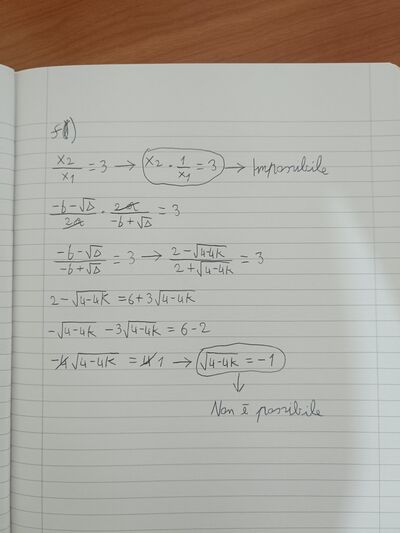 f)
x₂/x₁ = 3 → x₂ · 1/x₁ = 3 → Impossibile
(-b-√Δ)/2a · 2a/(-b+√Δ) = 3
(-b-√Δ)/(-b+√Δ) = 3 → (2-√4-4k)/(2+√4-4k) = 3
2-√4-4k = 6+3√4-4k
-√4-4k -3√4-4k = 6-2
-4√4-4k = 4 1 → √4-4k = -1
↓
Non è possibile